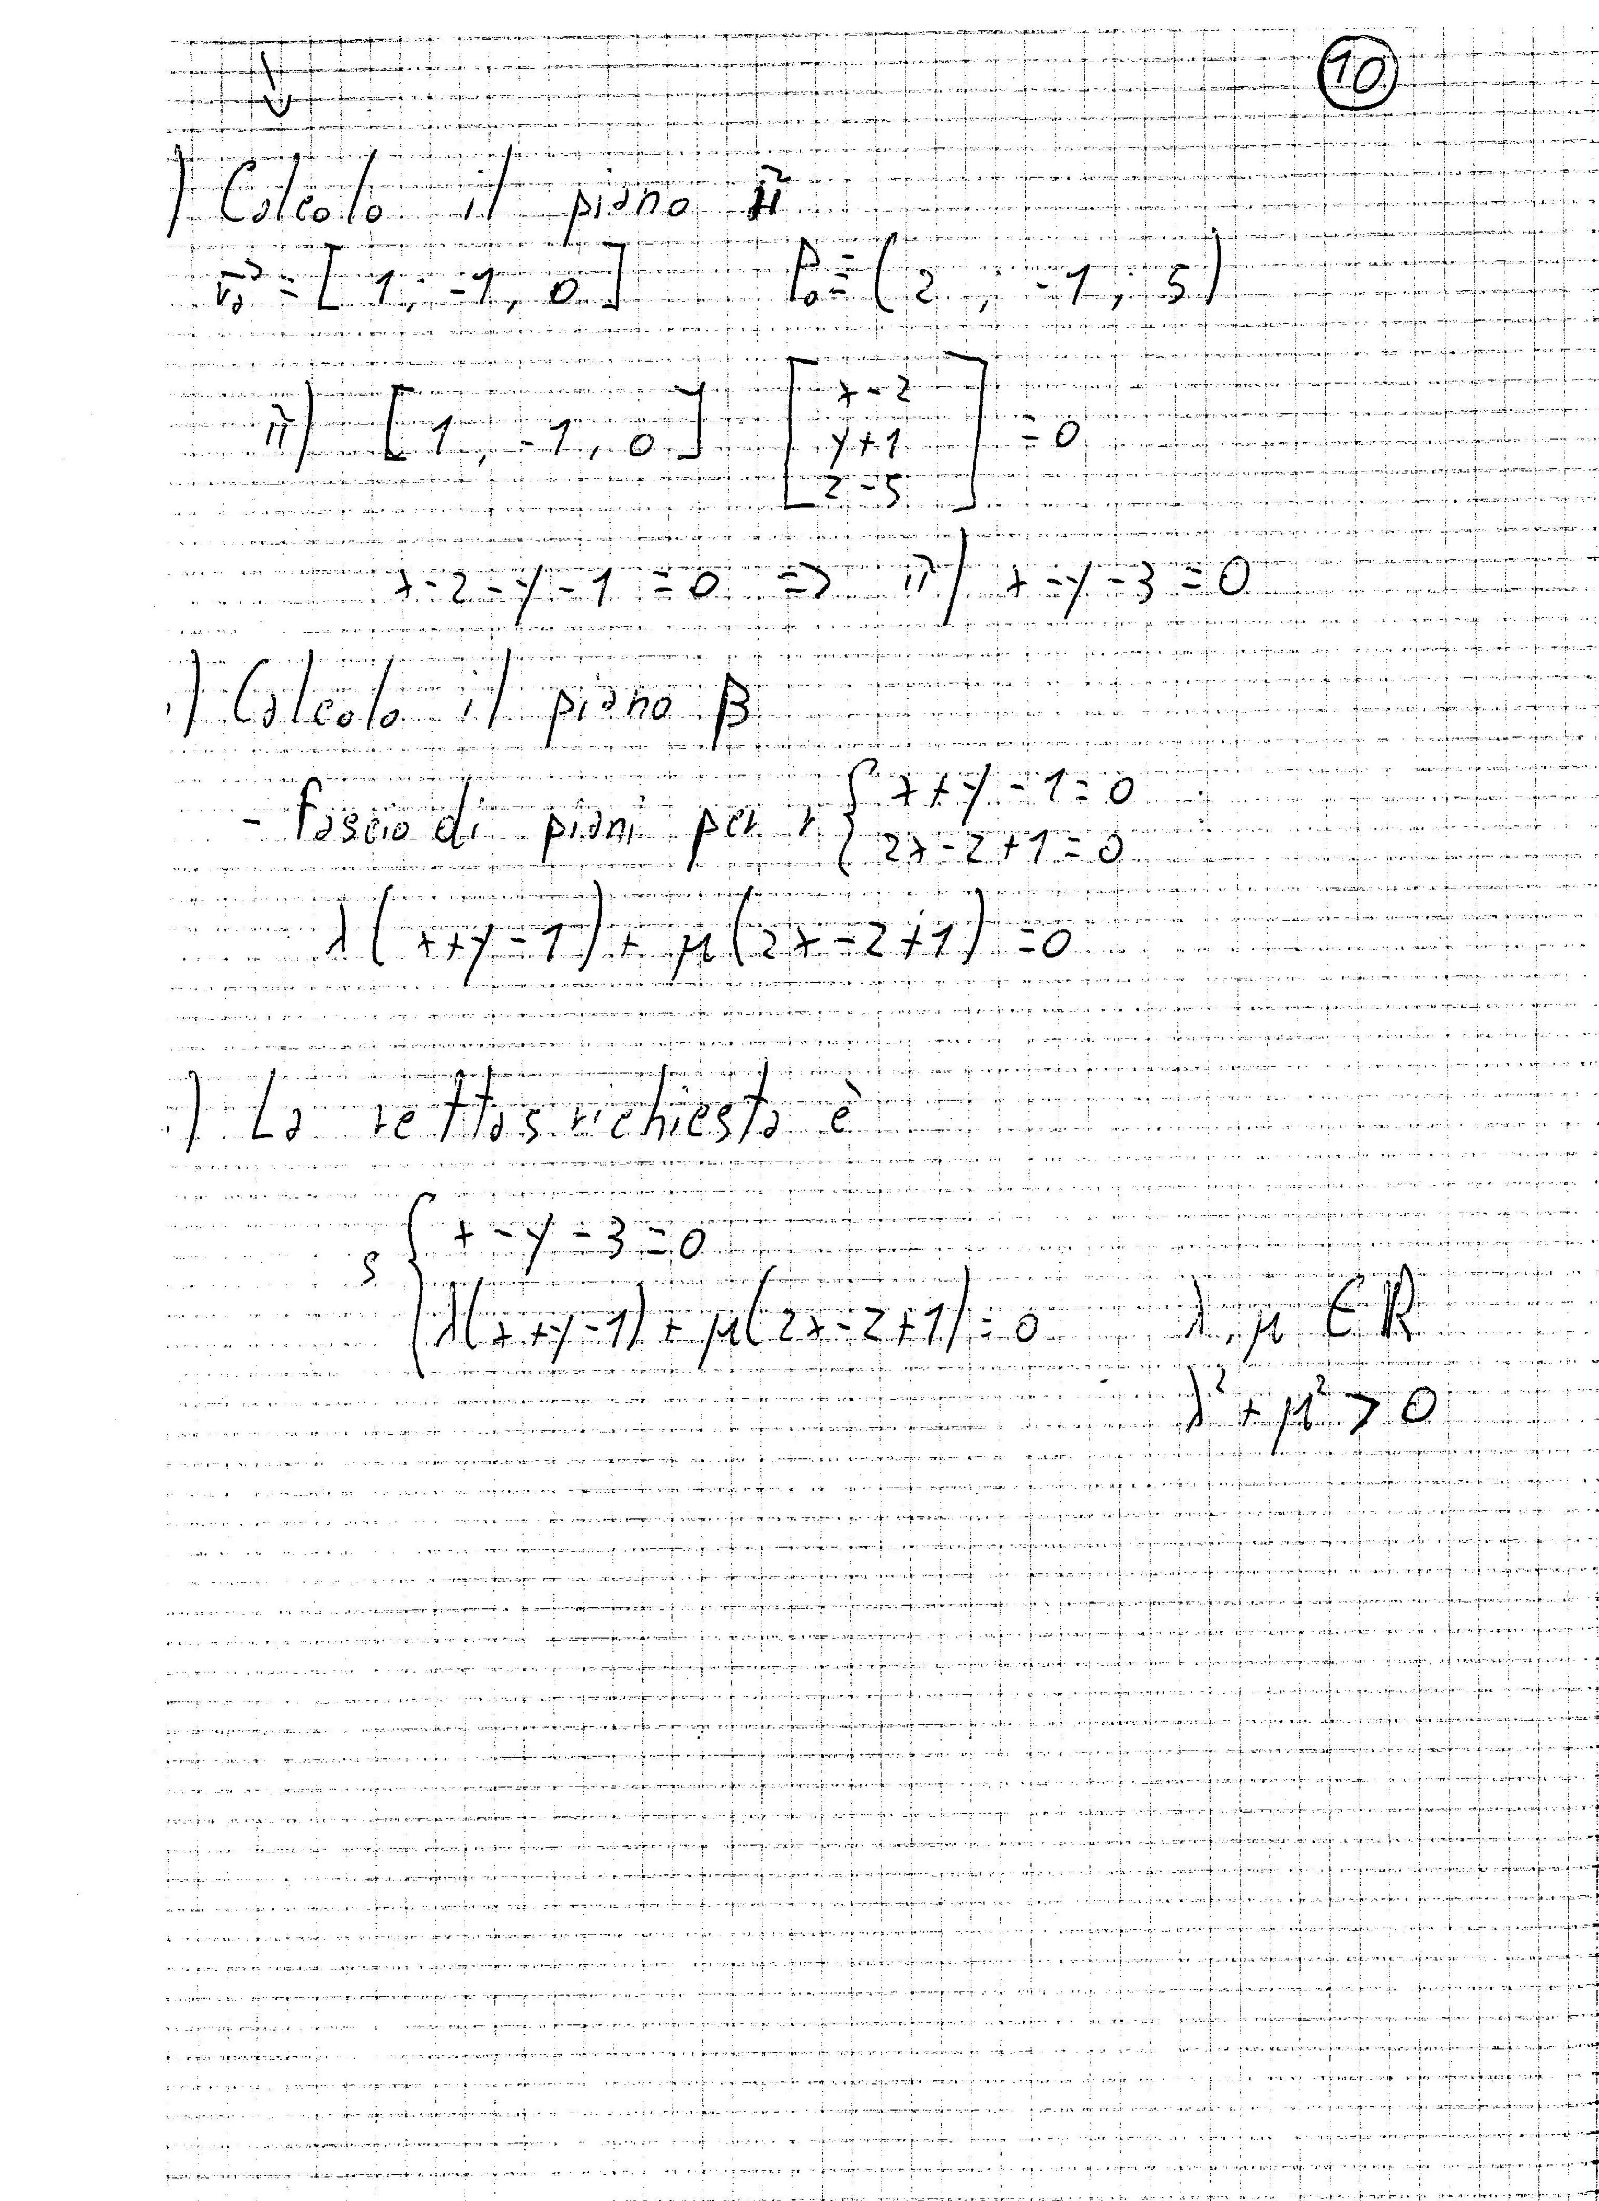 10
) Calcolo il piano π
v₂ = [ 1, -1, 0 ] P₀ ≡ ( 2 ; -1 ; 5 )
π) [ 1, -1, 0 ] [ x-2 y+1 z-5 ] = 0
x-2-y-1 = 0 => π) x-y-3 = 0
.) Calcolo il piano β
- fascio di piani per r { x+y-1=0
2x-z+1=0
λ(x+y-1) + μ(2x-z+1) = 0
.) La retta s richiesta è
s { x-y-3=0
λ(x+y-1) + μ(2x-z+1) = 0 λ, μ ∈ ℝ
λ² + μ² > 0